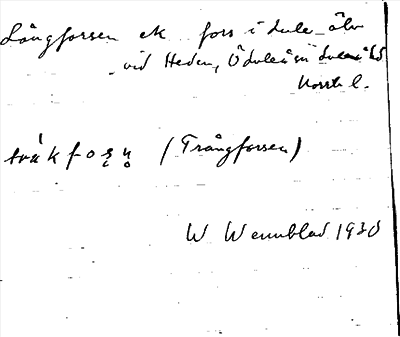 Långforsen ek fors i Lule älv
vid Heden, Öduleå sn Luleå tld
Norrb l.
tråkfoṣṇ (Trångforsen)
W Wennblad 1930